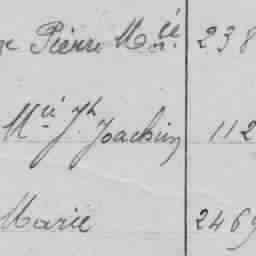 Pierre M.ie 238
M.ie J.h Joachim 112
Marie 2469